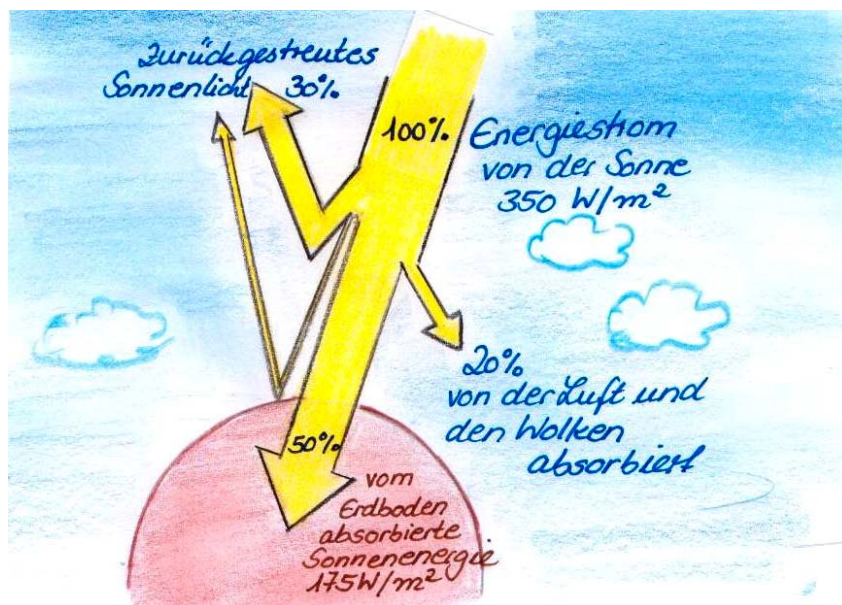 Zurückgestreutes
Sonnenlicht 30%
100%
Energiestrom
von der Sonne
350 W/m²
20%
von der Luft und
den Wolken
absorbiert
50%
vom
Erdboden
absorbierte
Sonnenenergie
175 W/m²